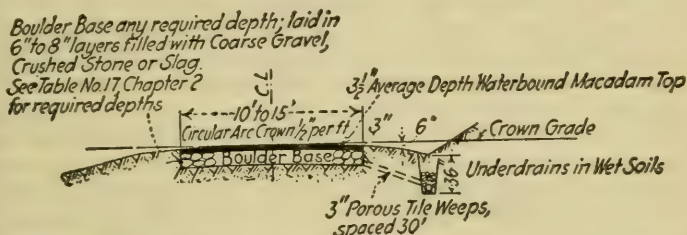 Boulder Base any required depth; laid in
6" to 8" layers filled with Coarse Gravel,
Crushed Stone or Slag.
See Table No. 17 Chapter 2
for required depths
C.L.
3½" Average Depth Waterbound Macadam Top
10' to 15'
Circular Arc Crown ½" per ft.
3"
6"
Crown Grade
Boulder Base
36"
Underdrains in Wet Soils
3" Porous Tile Weeps,
spaced 30'